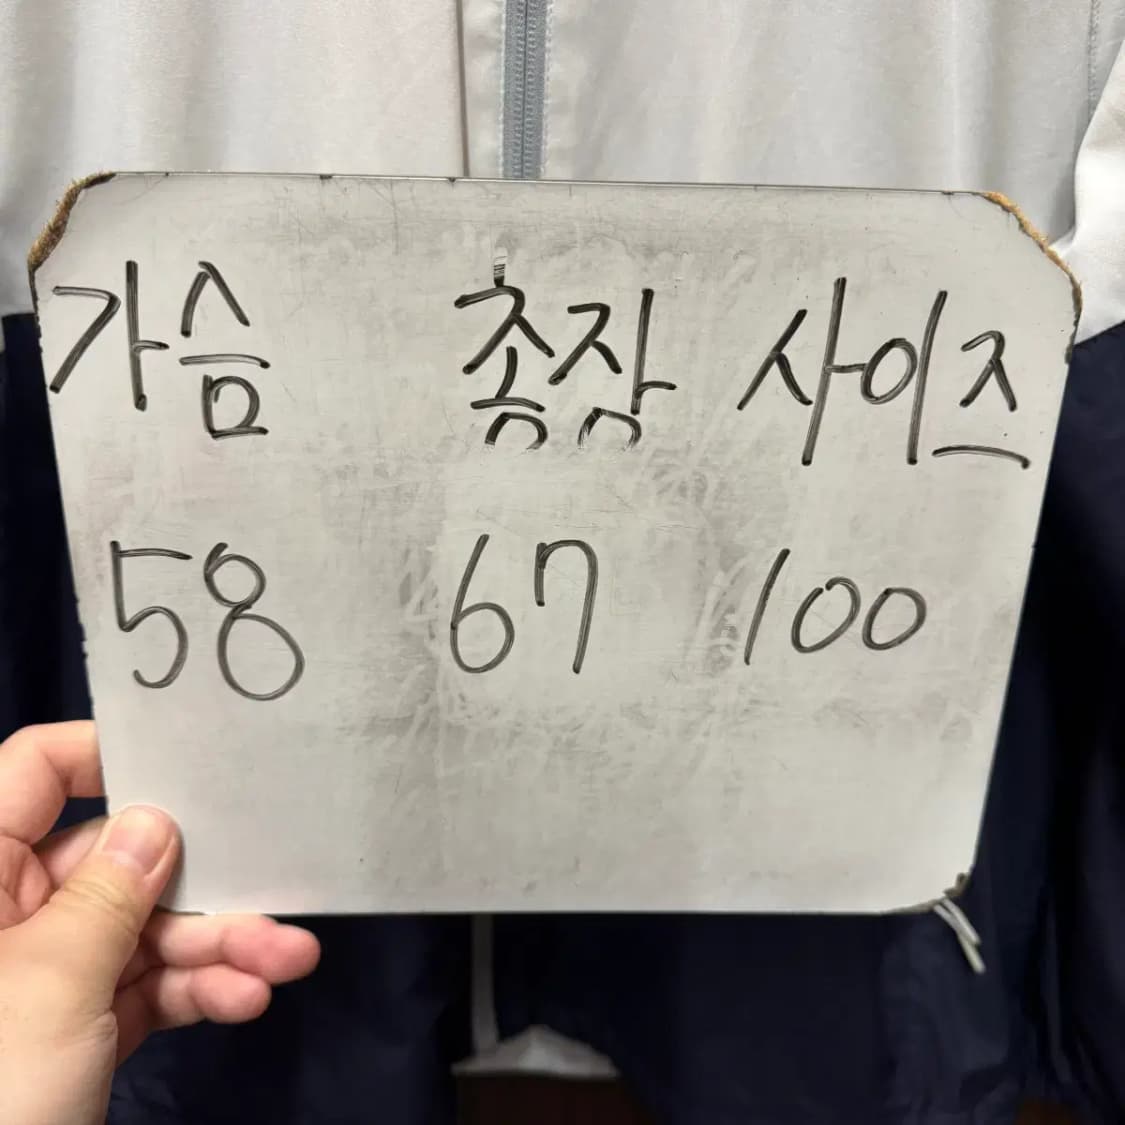 가슴 총장 사이즈
58 67 100